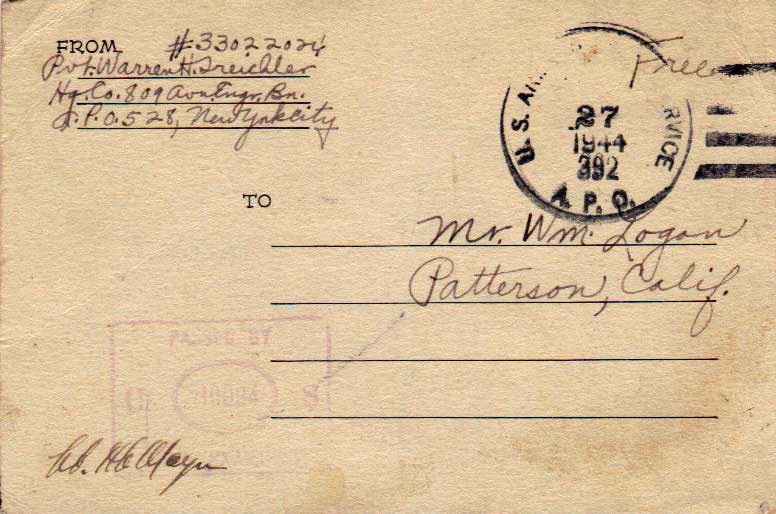 FROM #33022024
Pvt. Warren H. Treichler
Hq. Co. 809 Avn. Engr. Bn.
A.P.O. 528, New York City
Free
U.S. AR RVICE
27
1944
392
A.P.O.
TO
Mr. Wm. Logan
Patterson, Calif.
PASSED BY
U S